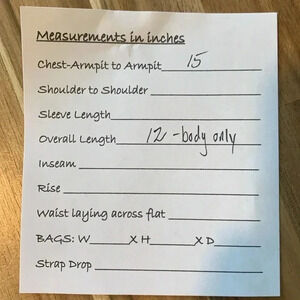 Measurements in inches
Chest-Armpit to Armpit 15
Shoulder to Shoulder
Sleeve Length
Overall Length 12 - body only
Inseam
Rise
Waist laying across flat
BAGS: W______X H______X D______
Strap Drop